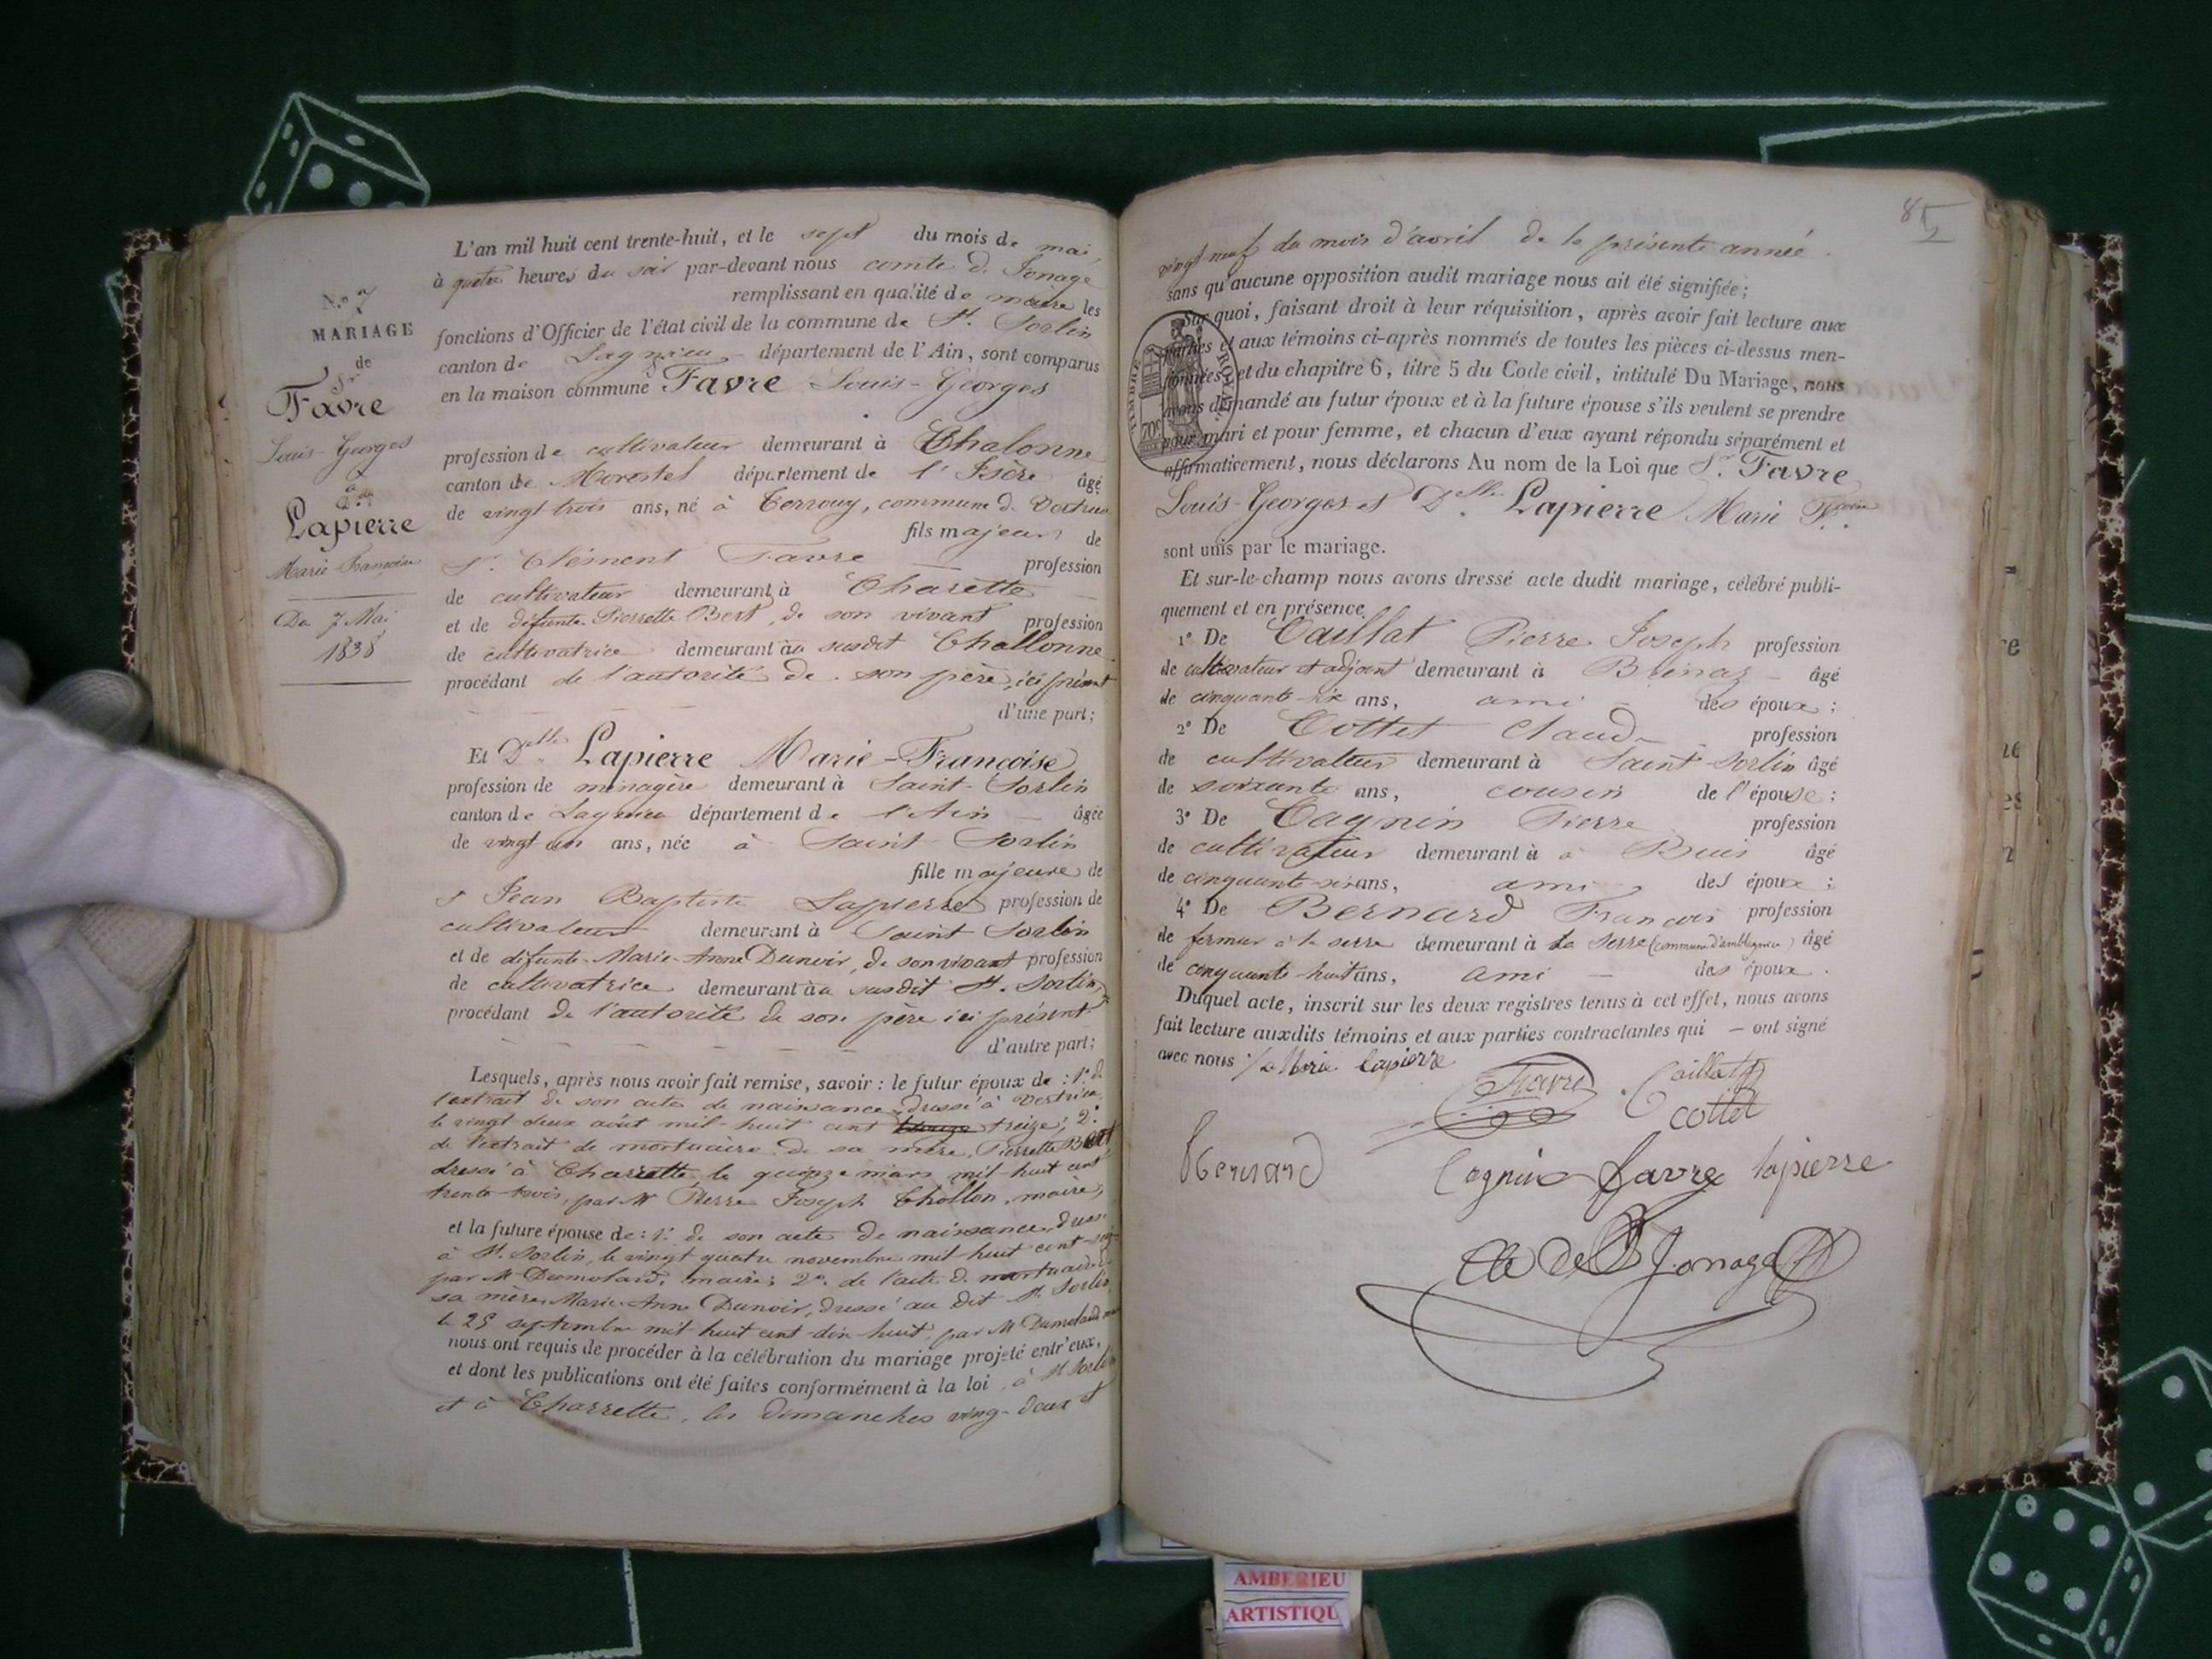 N.o 7
MARIAGE
de
Sr
Favre
Louis-Georges
à
Dlle
Lapierre
Marie Françoise
Du 7 Mai
1838
L'an mil huit cent trente-huit, et le sept du mois de mai,
à quatre heures du soir par-devant nous comte de Jonage
remplissant en qualité de maire les
fonctions d'Officier de l'état civil de la commune de St. Sorlin
canton de Lagnieu département de l'Ain, sont comparus
en la maison commune Sr Favre Louis-Georges
profession de cultivateur demeurant à Chalonne
canton de Morestel département de l'Isère âgé
de vingt trois ans, né à commune de
fils majeur de
Sr. Clément Favre profession
de cultivateur demeurant à Charette
et de défunte Pierrette Bert, de son vivant profession
de cultivatrice demeurant au susdit Challonne
procédant de l'autorité de son père, ici présent
d'une part;
Et Dlle Lapierre Marie-Françoise
profession de ménagère demeurant à Saint-Sorlin
canton de Lagnieu département de l'Ain âgée
de vingt un ans, née à Saint Sorlin
fille majeure de
S Jean Baptiste Lapierre profession de
cultivateur demeurant à Saint Sorlin
et de défunte Marie-Anne Dunoir, de son vivant profession
de cultivatrice demeurant au susdit St. Sorlin,
procédant de l'autorité de son père ici présent
d'autre part;
Lesquels, après nous avoir fait remise, savoir : le futur époux de : 1.o de
l'extrait de son acte de naissance dressé à Vertrieu
le vingt deux août mil-huit cent treize; 2.o
de l'extrait de mortuaire de sa mère, Pierrette Bert
dressé à Charrette le quinze mars mil-huit cent
trente-trois, par Mr Pierre Joseph Chollon, maire,
et la future épouse de : 1.o de son acte de naissance, dressé
à St. Sorlin, le vingt quatre novembre mil huit cent-seize
par Mr Dumolard, maire; 2.o de l'acte de mortuaire de
sa mère Marie-Anne Dunoir, dressé au dit St. Sorlin,
le 25 septembre mil-huit cent-dix huit, par Mr Dumolard
nous ont requis de procéder à la célébration du mariage projeté entr'eux,
et dont les publications ont été faites conformément à la loi, à St Sorlin
et à Charrette, les dimanches ving-deux et
85
vingt neuf du mois d'avril de la présente année.
sans qu'aucune opposition audit mariage nous ait été signifiée;
Sur quoi, faisant droit à leur réquisition, après avoir fait lecture aux
parties et aux témoins ci-après nommés de toutes les pièces ci-dessus men-
tionnées, et du chapitre 6, titre 5 du Code civil, intitulé Du Mariage, nous
avons demandé au futur époux et à la future épouse s'ils veulent se prendre
pour mari et pour femme, et chacun d'eux ayant répondu séparément et
affirmativement, nous déclarons Au nom de la Loi que Sr. Favre
Louis-Georges et Dlle Lapierre Marie Foise
sont unis par le mariage.
TIMBRE ROYAL
70c
Et sur-le-champ nous avons dressé acte dudit mariage, célébré publi-
quement et en présence
1o De Caillat Pierre Joseph profession
de cultivateur et adjoint demeurant à âgé
de cinquante-six ans, ami des époux ;
2o De Cottet Claude profession
de cultivateur demeurant à Saint-Sorlin âgé
de soixante ans, cousin de l'épouse ;
3o De Cagnin Pierre profession
de cultivateur demeurant à à Buis âgé
de cinquante-six ans, ami des époux ;
4o De Bernard François profession
de fermier à la serre demeurant à La Serre (commune d'ambagnieu) âgé
de cinquante-huit ans, ami des époux.
Duquel acte, inscrit sur les deux registres tenus à cet effet, nous avons
fait lecture auxdits témoins et aux parties contractantes qui – ont signé
avec nous /. Marie lapierre
Favre Caillat
cottet
Bernard Cagnin favre lapierre
Cte de Jonage
AMBERIEU
ARTISTIQU